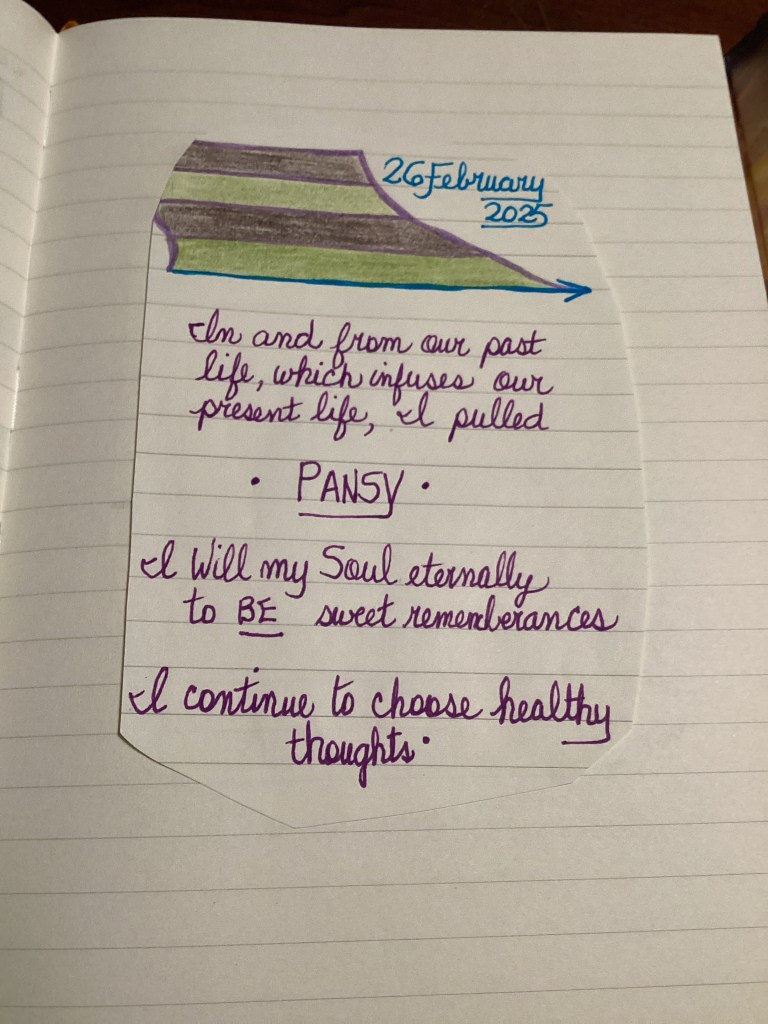 26 February
2025
In and from our past
life, which infuses our
present life, I pulled
• PANSY •
I Will my Soul eternally
to BE sweet rememberances
I continue to choose healthy
thoughts.